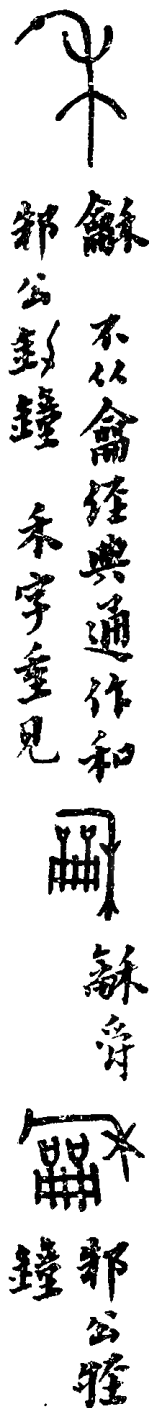 龢 不从龠經典通作和
邾公釛鐘 禾字重見
龢爵
邾公牼
鐘